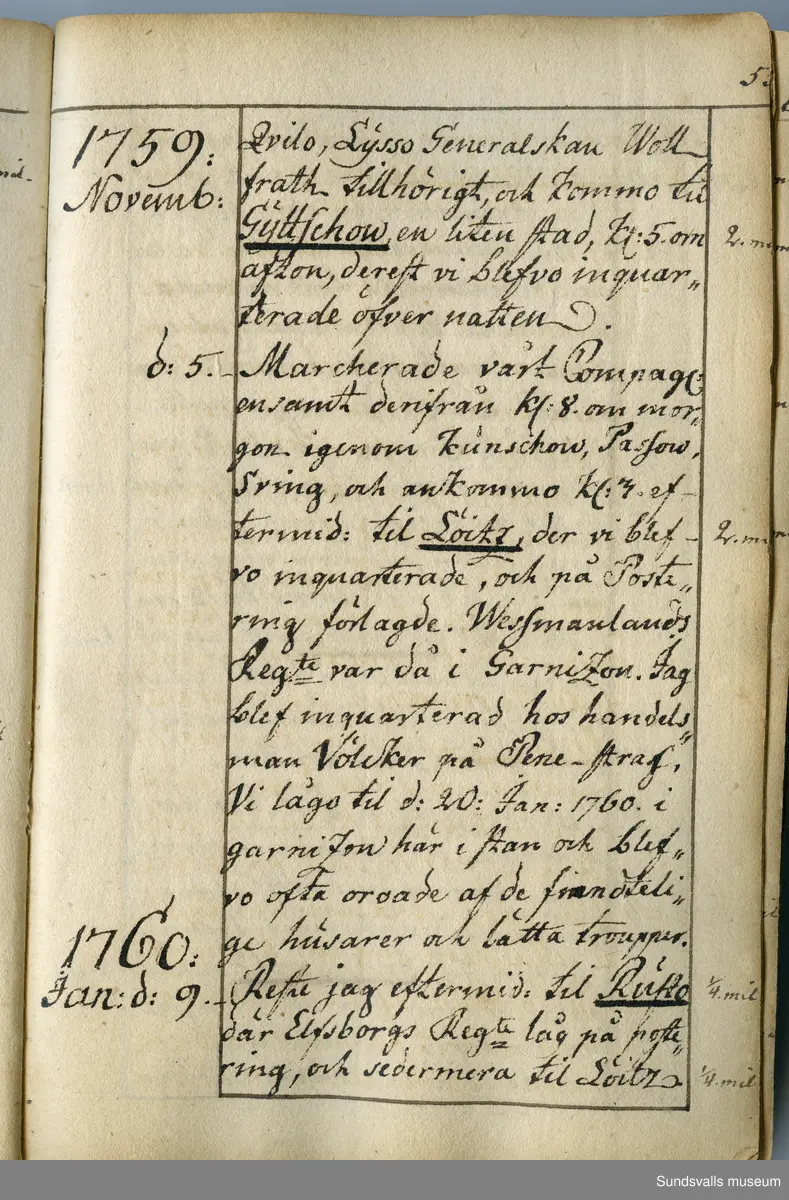 53
1759: Qvilo, Lÿsso Generalskan Woll-
Novemb: frath tillhörigt, och kommo til
Gÿttschow, en liten stad, kl: 5. om 2. mi
afton, derest vi blefvo inquar„
terade öfver natten.
d: 5. Marcherade vårt Compagc:
ensamt derifrån kl: 8. om mor„
gon igenom Kunschow, Passow,
Sving, och ankommo kl: 3. ef-
termid: til Löitz, der vi blef- 2. mi
vo inquarterade, och på Poste„
ring förlagde. Wessmanlands
Regte var då i Garnizon. Jag
blef inquarterad hos handels„
man Völcker på Pene-strass,
Vi lågo til d: 20: Jan: 1760. i
garnizon här i stan och blef„
vo ofta oroade af de fiendteli„
1760: ge husarer och lätta troupper.
Jan: d: 9. Reste jag eftermid: til Rusto ¼. mil
där Elfsborgs Regte låg på poste„
ring, och sedermera til Löitz. ¼. mil
Sundsvalls museum